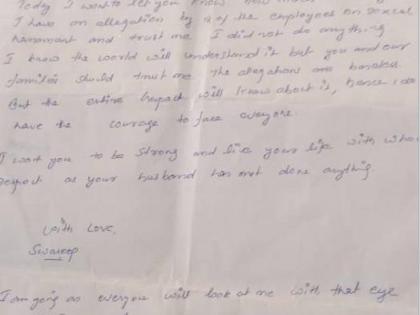 Today I want to let you know how much
I have an allegation by 2 of the employees on sexual
harassment and trust me I did not do anything
I know the world will understand it but you and our
families should trust me. The allegations are baseless
But the entire will know about it, hence I do
have the courage to face everyone.
I want you to be strong and live your life with
respect as your husband has not done anything.
With Love,
Swaroop
I am going as everyone will look at me with that eye